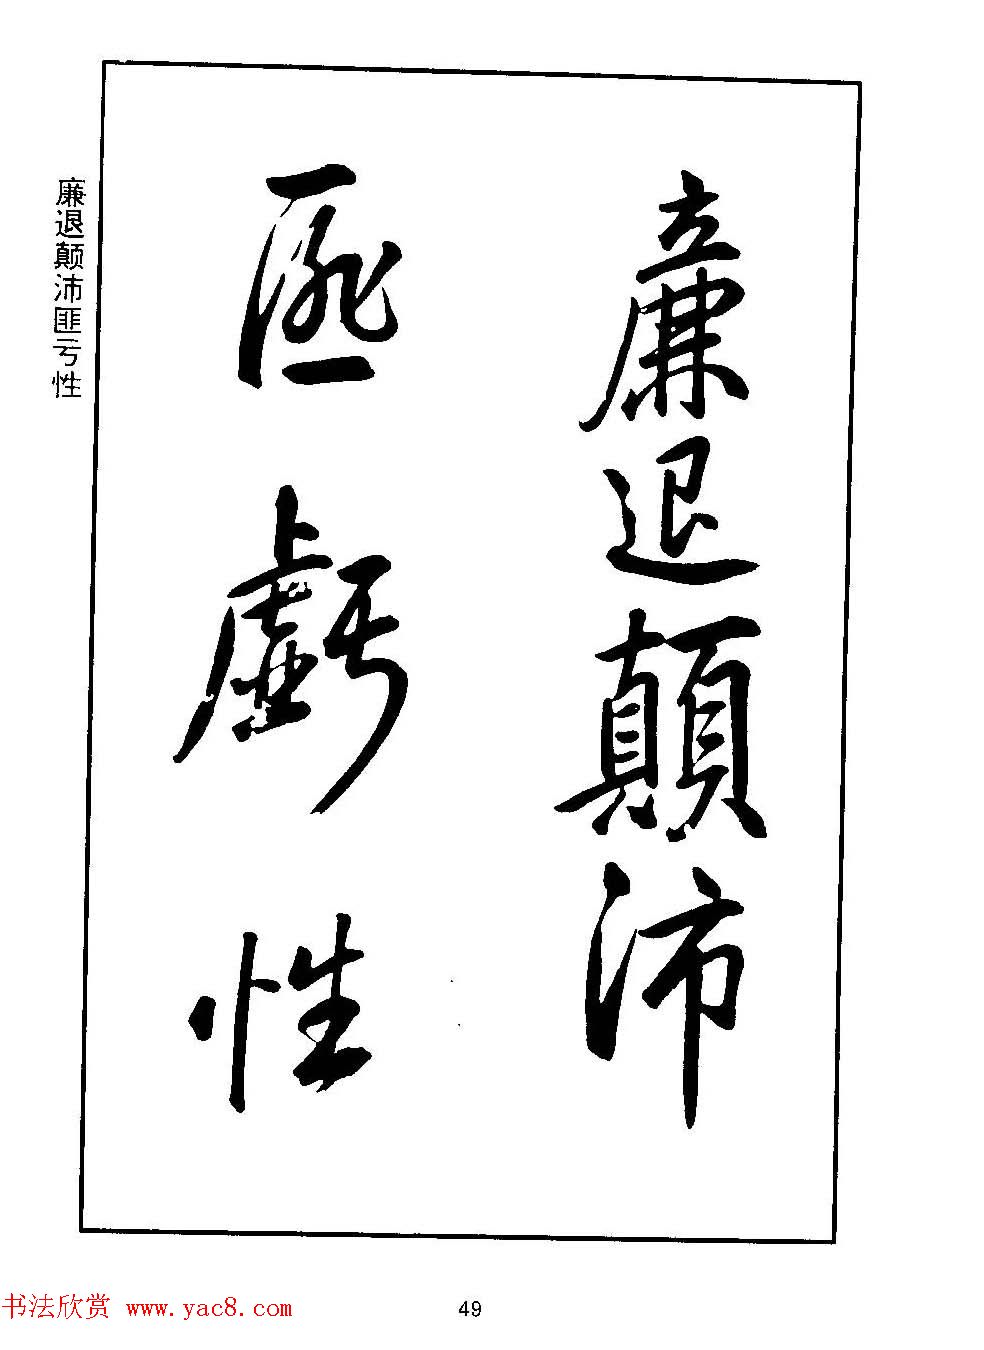 廉退顛沛
匪虧性
廉退颠沛匪亏性
书法欣赏 www.yac8.com
49